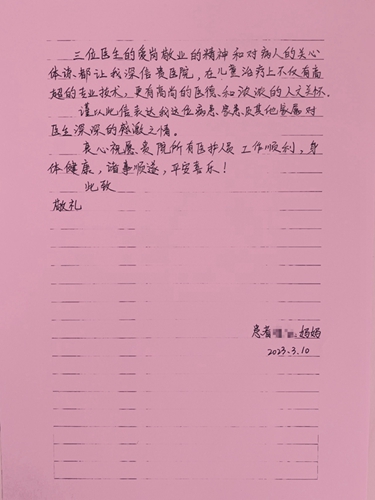 三位医生的爱岗敬业的精神和对病人的关心
体谅都让我深信贵医院,在儿童治疗上不仅有高
超的专业技术,更有高尚的医德和浓浓的人文关怀.
谨以此信表达我这位病患家属及其他家属对
医生深深的感激之情。
衷心祝愿贵院所有医护人员工作顺利,身
体健康,诸事顺遂,平安喜乐!
此致
敬礼
患者 妈妈
2023.3.10